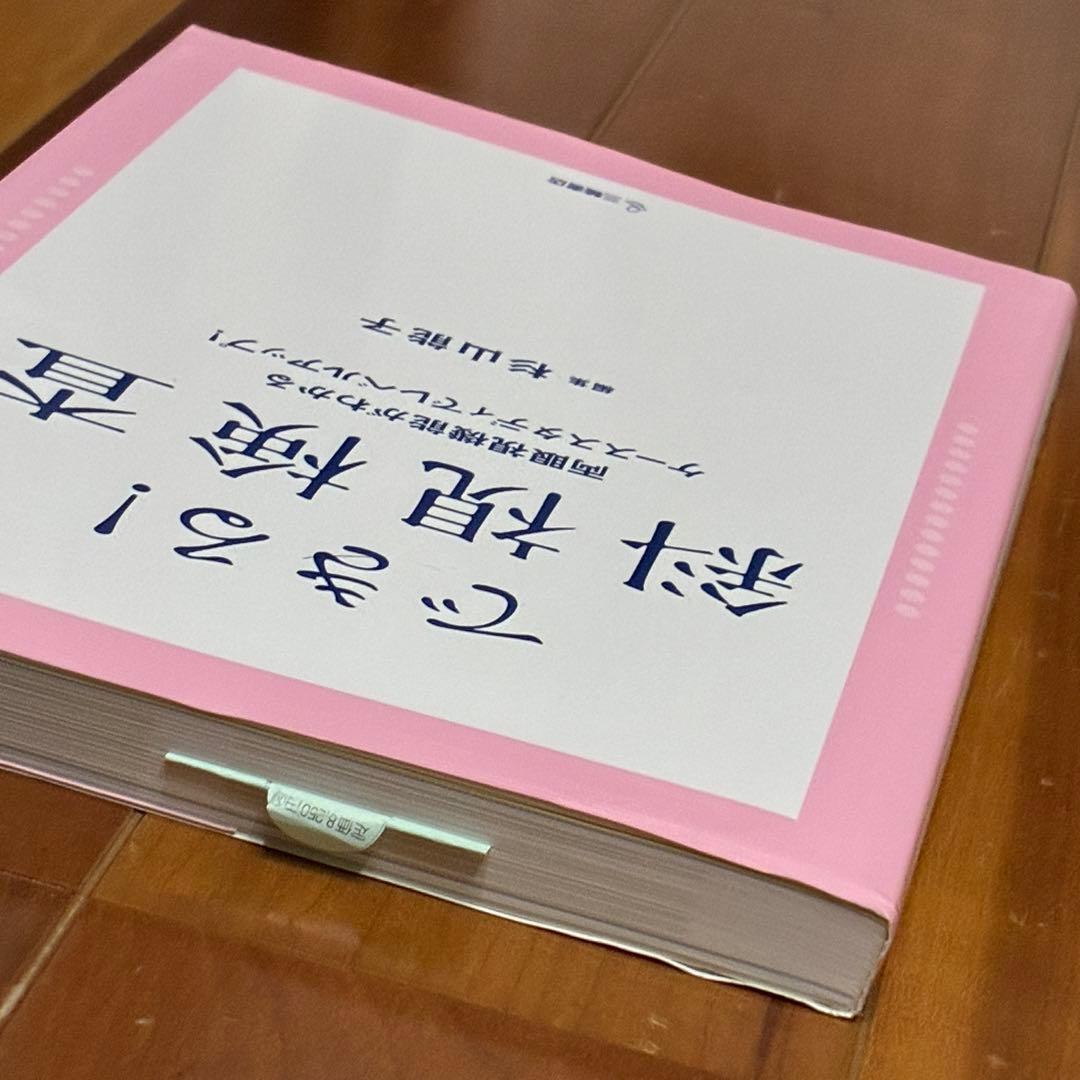 できる!
斜視検査
両眼視機能がわかる
ケーススタディでレベルアップ!
編集 杉山能子
三輪書店
定価8,250円